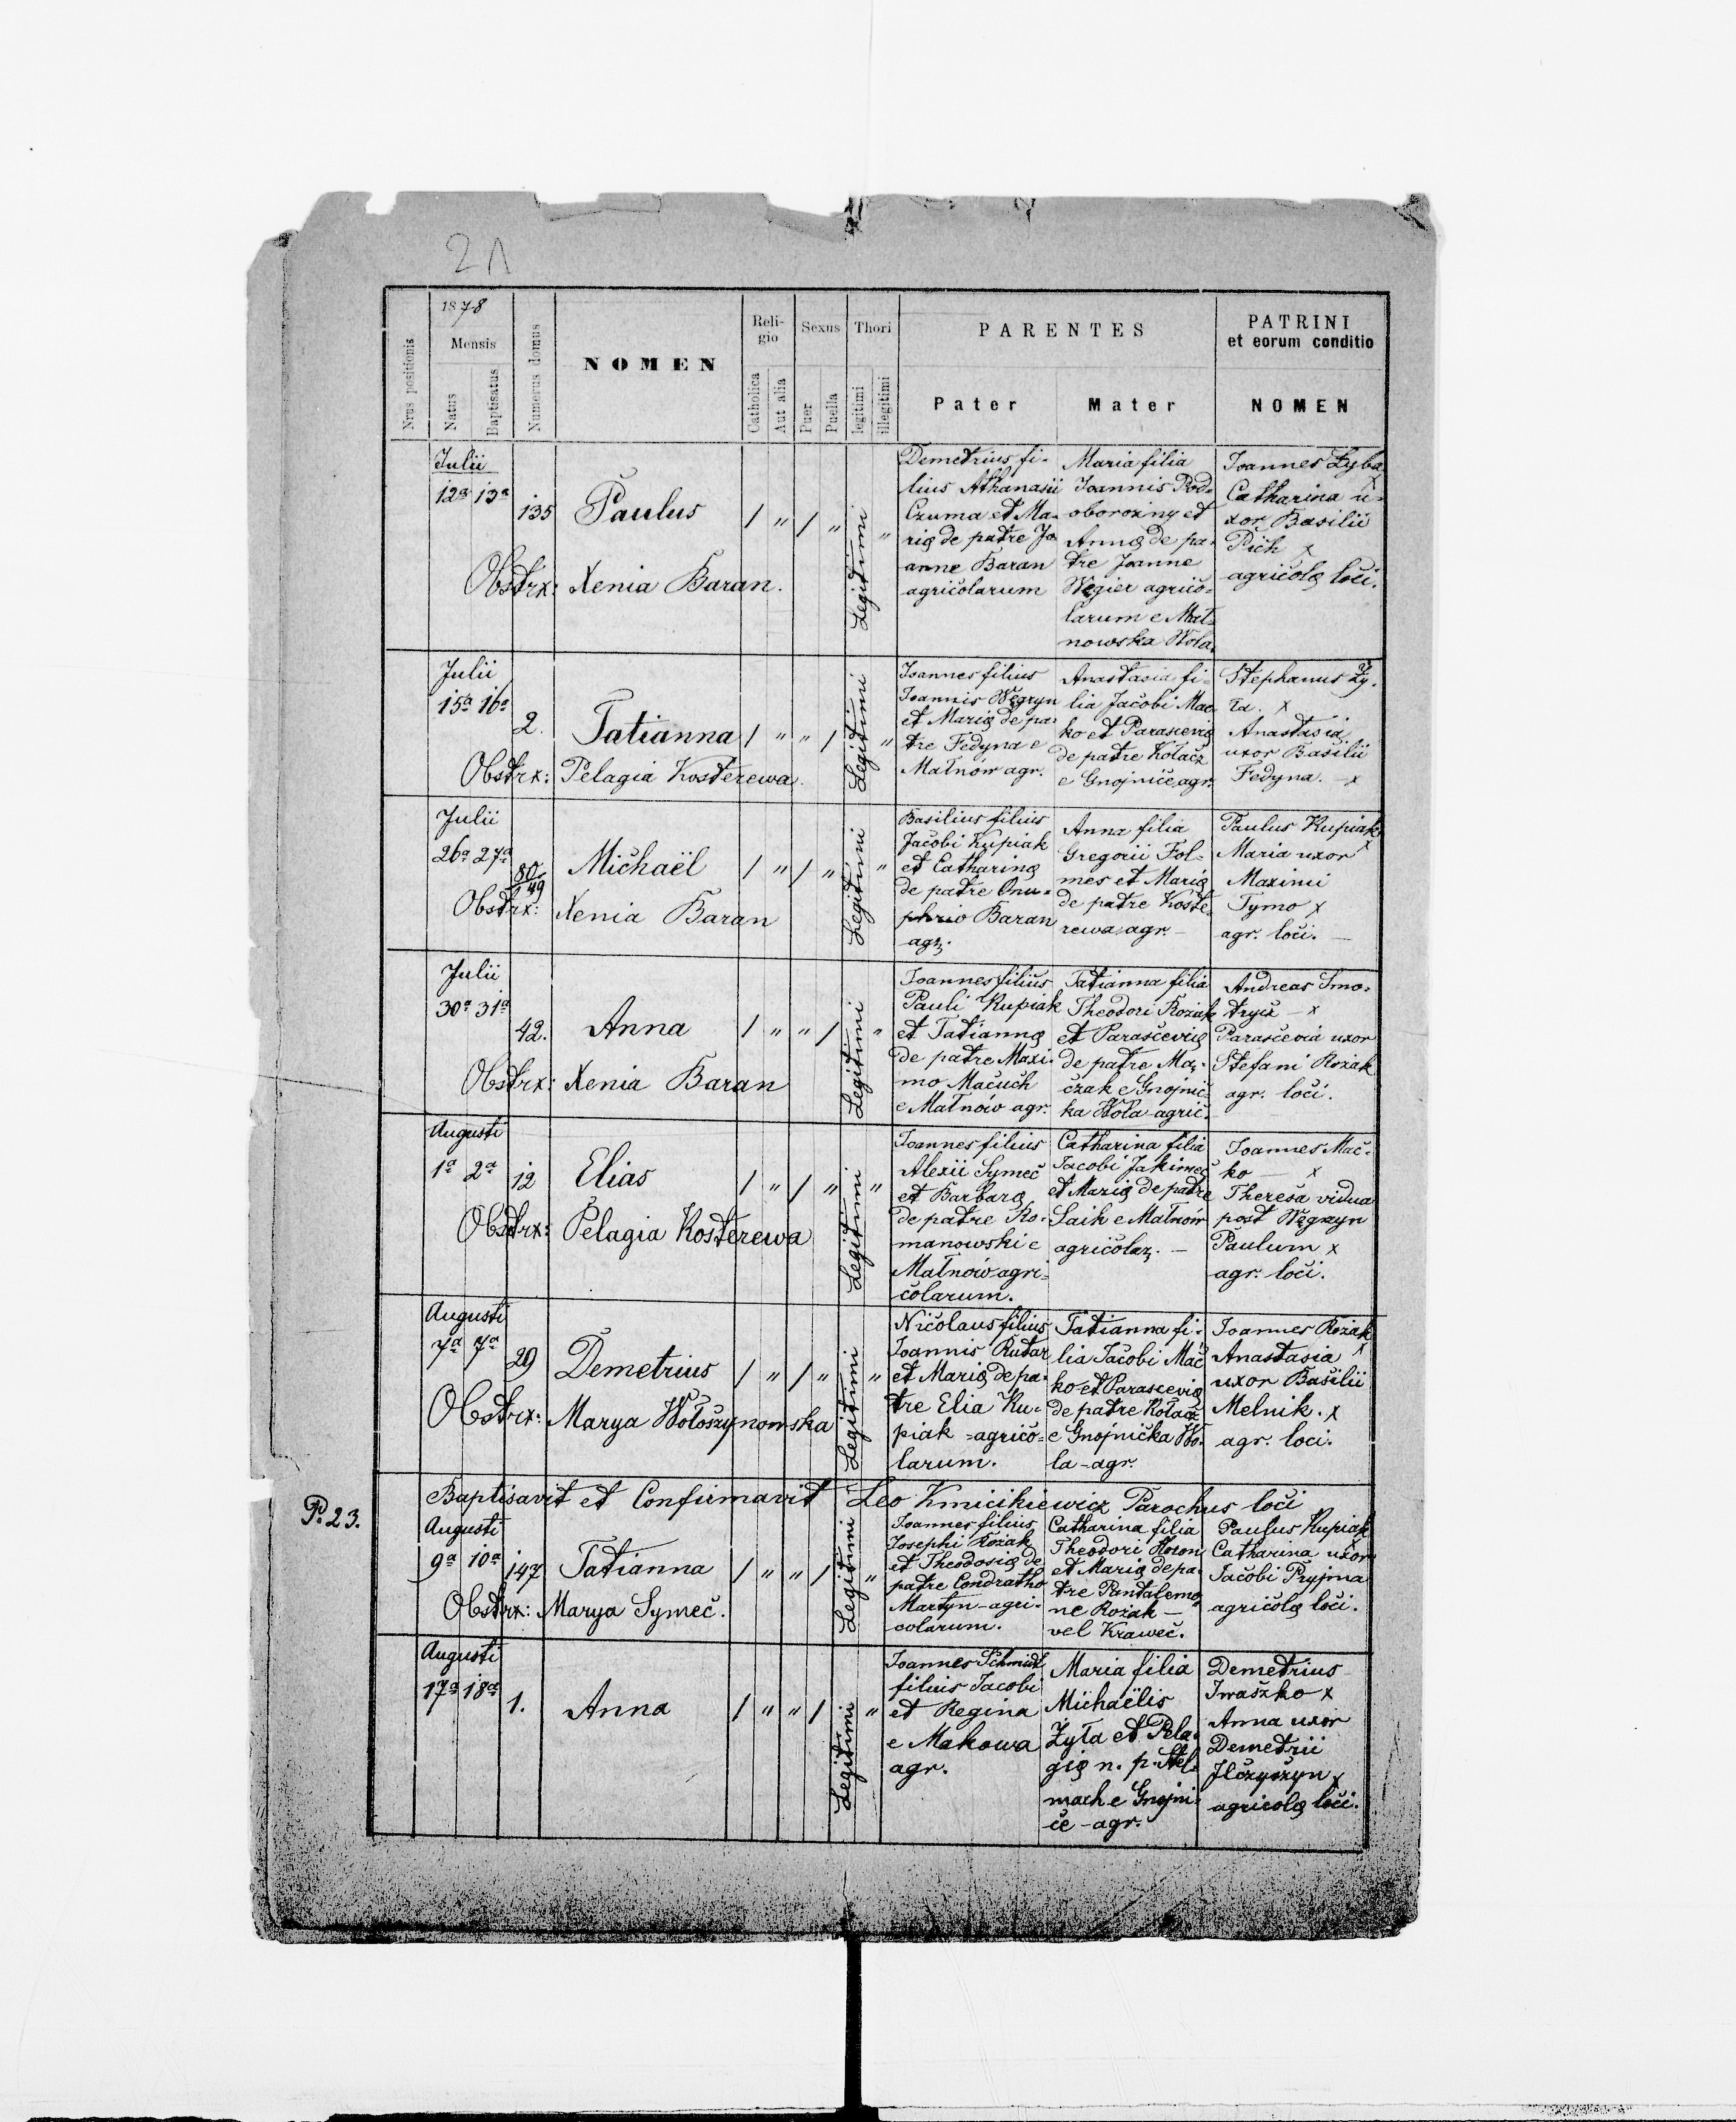 2
1878
Mensis
Nrus positionis
Natus
Baptisatus
Numerus domus
NOMEN
Reli-
gio
Catholica
Aut alia
Sexus
Puer
Puella
Thori
legitimi
illegitimi
PARENTES
Pater
Mater
PATRINI
et eorum conditio
NOMEN
Julii
12a 13a
135
Paulus
/ " / " "
Legitimi
Obstrx: Xenia Baran.
Demetrius fi-
lius Athanasii
Czuma et Ma-
rię de patre Jo
anne Baran
agricolarum
Maria filia
Joannis Pod-
oborozny et
Annę de pa-
tre Joanne
Węgier agrico-
larum e Mał-
nowska Wola.
Joannes Zyba
x
Catharina u-
xor Basilii
Pich x
agricolę loci.
Julii
15a 16a
2.
Tatianna
/ " " / "
Legitimi
Obstrx: Pelagia Kosterewa.
Joannes filius
Joannis Węgryn
et Marię de pa-
tre Fedyna e
Małnów agr.
Anastasia fi-
lia Jacobi Mac-
ko et Parascevię
de patre Kołacz
e Gnojnice agr.
Stephanus Zy-
ła. x
Anastasia
uxor Basilii
Fedyna. — x
Julii
26a 27a
80
149
Michaël
/ " / " "
Legitimi
Obstrx: Xenia Baran
Basilius filius
Jacobi Kupiak
et Catharinę
de patre Onu-
phrio Baran
agr.
Anna filia
Gregorii Fol-
mes et Marię
de patre Koste-
rewa agr. —
Paulus Kupiak
x
Maria uxor
Maximi
Tymo x
agr. loci. —
Julii
30a 31a
42.
Anna
/ " " / "
Legitimi
Obstrx: Xenia Baran
Joannes filius
Pauli Kupiak
et Tatiannę
de patre Maxi-
mo Macuch
e Małnów agr.
Tatianna filia
Theodori Rozak
et Parascevię
de patre Ma-
czak e Gnojnic-
ka Wola agric.
Andreas Smo-
trycz — x
Parascevia uxor
Stefani Rozak
agr. loci.
Augusti
1a 2a
12
Elias
/ " / " "
Legitimi
Obstrx: Pelagia Kosterewa
Joannes filius
Alexii Symec
et Barbarę
de patre Ro-
manowski e
Małnów agri-
colarum.
Catharina filia
Jacobi Jakimec
et Marię de patre
Saik e Małnów
agricolar. —
Joannes Mac-
ko — x
Theresa vidua
post Węgrzyn
Paulum x
agr. loci.
Augusti
7a 7a
29
Demetrius
/ " / " "
Legitimi
Obstrx: Marya Wołoszynowska
Nicolaus filius
Joannis Rutar
et Marię de pa-
tre Elia Ku-
piak - agrico-
larum.
Tatianna fi-
lia Jacobi Mac
ko et Parascevię
de patre Kołacz
e Gnojnicka Wo-
la - agr.
Joannes Rozak
x
Anastasia
uxor Basilii
Melnik. x
agr. loci.
Baptisavit et Confirmavit Leo Kmicikiewicz Parochus loci
P. 23.
Augusti
9a 10a
147
Tatianna
/ " " / "
Legitimi
Obstrx: Marya Symec.
Joannes filius
Josephi Rozak
et Theodosię de
patre Condratho
Martyn - agri-
colarum.
Catharina filia
Theodori Horon
et Marię de pa-
tre Pantalemo
ne Rozak —
vel Krawec.
Paulus Kupiak
Catharina uxor
Jacobi Pryjma
agricolę loci.
Augusti
17a 18a
1.
Anna
/ " " / "
Legitimi
Joannes Schmidt
filius Jacobi
et Regina
e Makowa
agr.
Maria filia
Michaëlis
Żyła et Pela-
gię n. p. Stel-
mach e Gnojni-
ce - agr.
Demetrius
Iwaszko x
Anna uxor
Demetrii
Ilczyszyn x
agricolę loci.